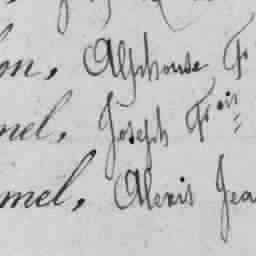 on, Alphonse F
nel, Joseph Frois
mel, Alexis Jea